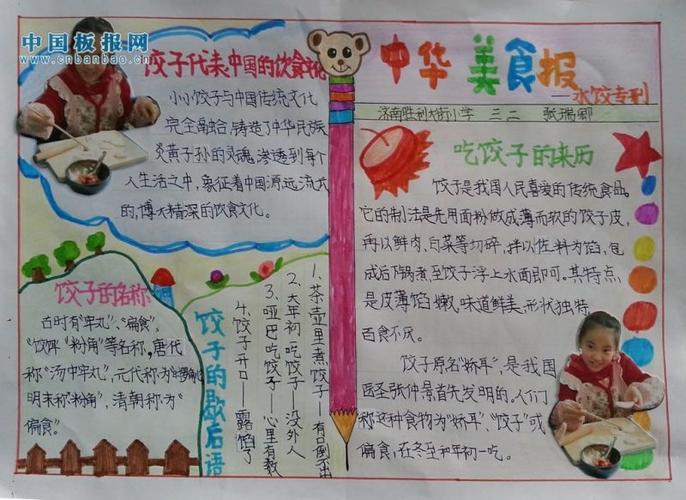 中国板报网
www.cnbanbao.cn
饺子代表中国的饮食文化
小小饺子与中国传统文化
完全融铸造了中华民族
炎黄子孙的灵魂渗透到每个
人生活之中，象征着中国源远流长
的，博大精深的饮食文化。
饺子的名称
古时有“牢丸”、“扁食”、
“饺饵”“粉角”等名称，唐代
称“汤中牢丸”，元代称为
明末称“粉角”，清朝称为“
扁食”。
饺子的歇后语
1、茶壶里煮饺子——有口倒不出
2、大年初一吃饺子——没外人
3、哑巴吃饺子——心里有数
4、饺子开口——露馅了
中华美食报
——水饺专刊
济南胜利大街小学 三、二 张瑞卿
吃饺子的来历
饺子是我国人民喜爱的传统食品。
它的制法是先用面粉做成薄而软的饺子皮，
再以鲜肉、白菜等切碎，拌以佐料为馅，包
成后下锅煮，至饺子浮上水面即可。其特点
是皮薄馅嫩，味道鲜美，形状独特
百食不厌。
饺子原名“娇耳”，是我国
医圣张仲景首先发明的。人们
称这种食物为“娇耳”、“饺子”或
扁食，在冬至和年初一吃。